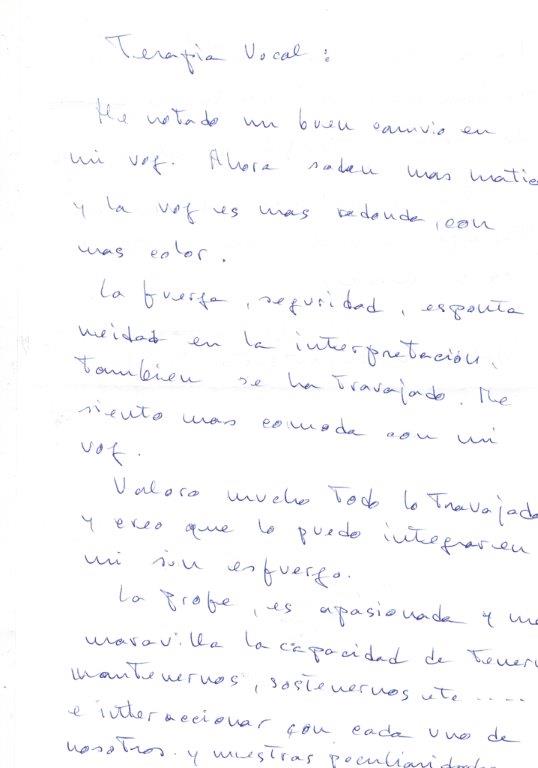 Terapia Vocal:
He notado un buen camvio en
mi voz. Ahora salen mas matic
y la voz es mas redonda, con
mas color.
La fuerza, seguridad, esponta
neidad en la interpretación,
tambien se ha travajado. Me
siento mas comoda con mi
voz.
Valoro mucho todo lo travajado
y creo que lo puedo integrar en
mi sin esfuerzo.
La profe, es apasionada y me
maravilla la capacidad de teneri
mantenernos, sostenernos etc .....
e interaccionar con cada uno de
nosotros y nuestras peculiaridades